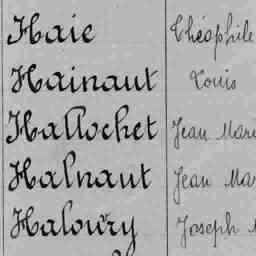 Haie Théophile
Hainaut Louis
Hallochet Jean Mari
Halnaut Jean Mar
Haloury Joseph